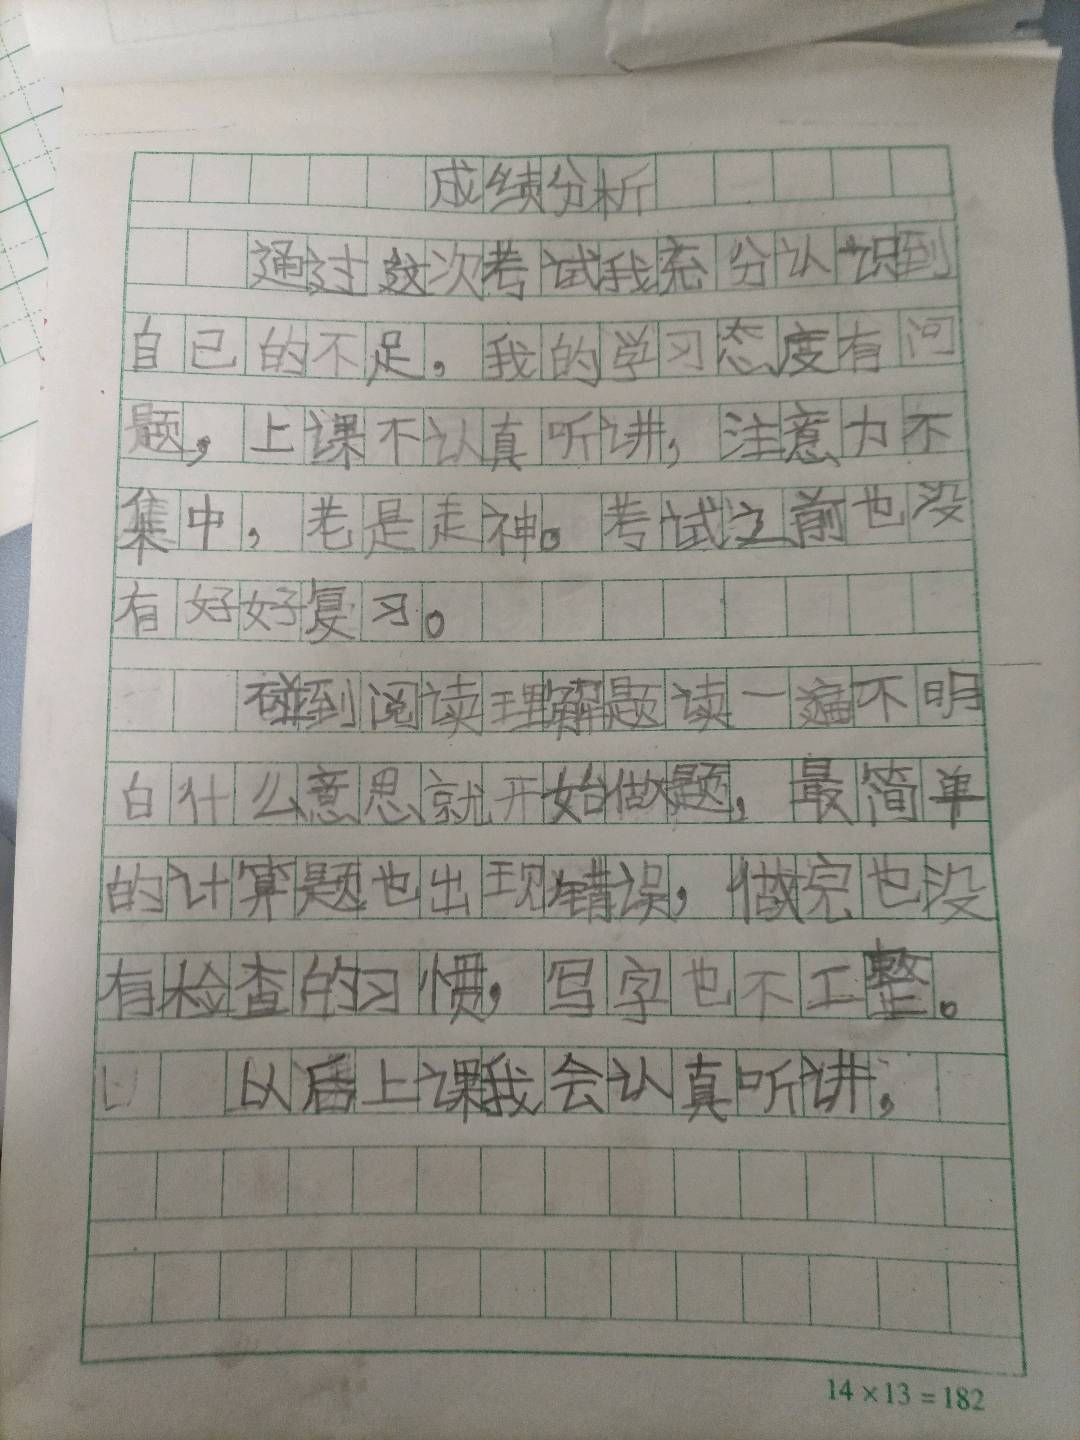 成绩分析
通过这次考试我充分认识到
自己的不足，我的学习态度有问
题，上课不认真听讲，注意力不
集中，老是走神。考试之前也没
有好好复习。
碰到阅读理解题读一遍不明
白什么意思就开始做题，最简单
的计算题也出现错误，做完也没
有检查的习惯，写字也不工整。
以后上课我会认真听讲，
14×13=182